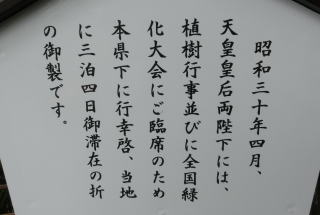 昭和三十年四月、
天皇皇后両陛下には、
植樹行事並びに全国緑
化大会にご臨席のため
本県下に行幸啓、当地
に三泊四日御滞在の折
の御製です。